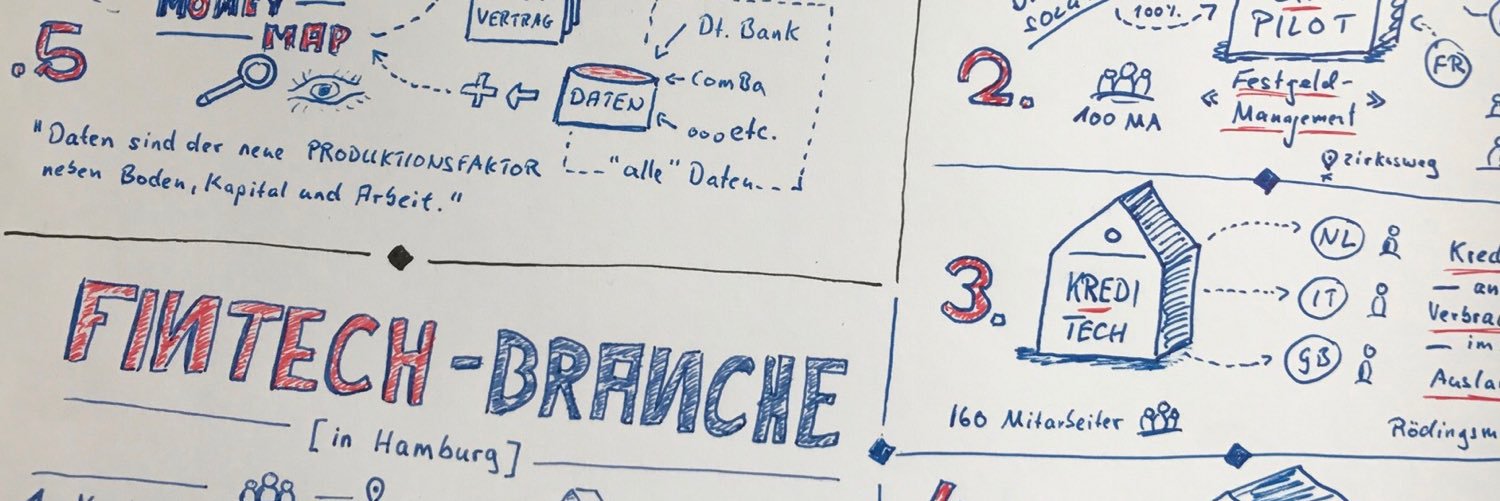 MONEY
MAP
.5
VERTRAG
Dt. Bank
ComBa
DATEN
etc.
"alle" Daten
"Daten sind der neue PRODUKTIONSFAKTOR
neben Boden, Kapital und Arbeit."
FINTECH-BRANCHE
[in Hamburg]
100%
PILOT
FR
2.
100 MA
« Festgeld- »
Management
Zirkusweg
3.
KREDI
TECH
NL
IT
GB
160 Mitarbeiter